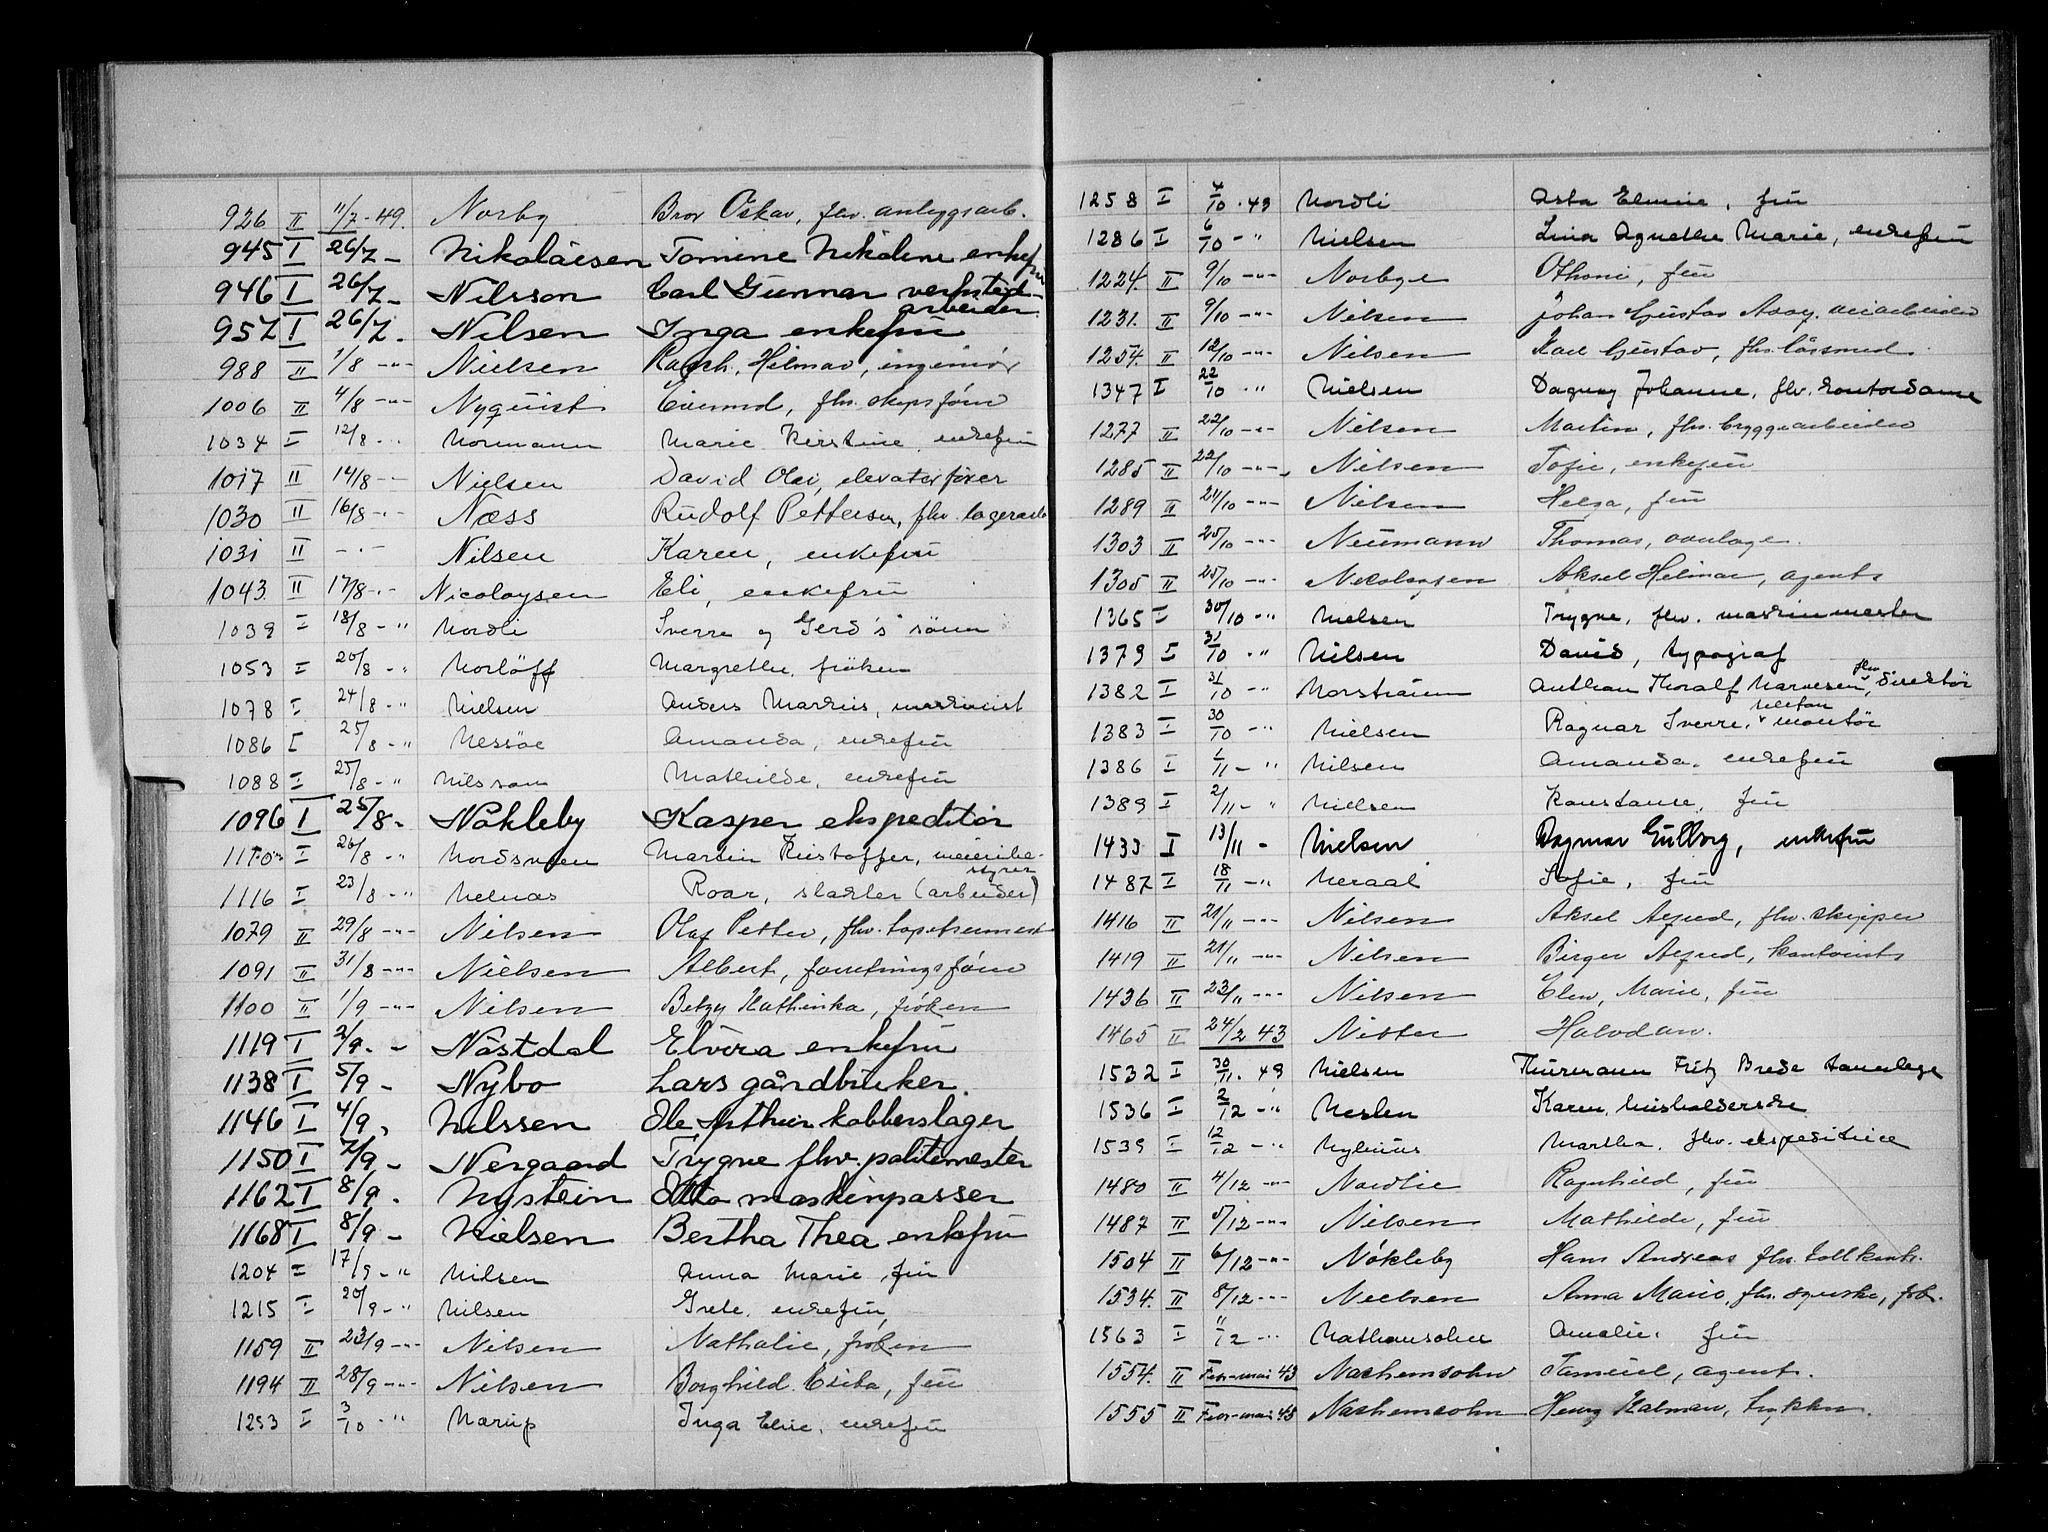 926 II 11/7-49. Norby Bror Oskar, fhv. anleggsarb.
945 I 26/7 - Nikolaisen Tomine Nikoline enkefru
946 I 26/7 - Nilsson Carl Gunnar verksted-
arbeider
957 I 26/7. Nilsen Inga enkefru
988 II 1/8 -"- Nielsen Ralph. Hilmar, ingeniør
1006 II 4/8 -"- Nyquist Eivind, fhv. skipsfører
1034 I 12/8 -"- Normann Marie Kirstine enkefru
1017 II 14/8 -"- Nielsen David Olai, elevatorfører
1030 II 16/8 -"- Næss Rudolf Pettersen, fhv. lagerarb
1031 II -"- Nilsen Karen, enkefru
1043. II 17/8 -"- Nicolaysen Eli, enkefru
1039 I 18/8 -" Nordli Sverre og Gerd's sønn
1053 I 20/8 -" Norløff Margrethe, frøken
1078 I 24/8 -" Nielsen Anders Markus, maskinist
1086 I 25/8 -" Nessøe Amanda, enkefru
1088 I 25/8 -" Nilsson Mathilde, enkefru
1096 I 25/8 - Nøkleby Kasper ekspeditør
I 26/8 -" Martin Kristoffer, meieribe-
styrer
1116 I 23/8 -" Nelnæs Roar, slakter (arbeider)
1079 II 29/8 -"- Nilsen Olaf Petter, fhv. tapetsermest
1091 II 31/8 -"- Nielsen Albert, forretningsfører
1100 II 1/9 -"- Nilsen Betzy Kathinka, frøken
1119 I 2/9. - Nåstdal Elvira enkefru
1138 I 5/9 - Nybo Lars gårdbruker.
1146 I 4/9, Nilssen Ole Arthur kobberslager
1150 I 7/9 - Nergaard Trygve fhv. politimester
1162 I 8/9. Nystein Otto maskinpasser
1168 I 8/9 - Nielsen Bertha Thea enkefru
1204 I 17/9 -" Nilsen Anna Marie, fru
1215 I 20/9 -" Nilsen Grete. enkefru,
1159 II 23/9 -"- Nilsen Nathalie, frøken
1194 II 28/9 -"- Nilsen Borghild fru
1253 I 3/10 -" Narup Inga Elise. enkefru
1258 I 4/10 - 49 Nordli Asta Elmine, fru
1286 I 6/10 -" Nielsen Lina Agnethe Marie, enkefru
1224. II 9/10 -"- Norbye Othonie, fru
1231. II 9/10 -"- Nilsen Johan Gustav Aaag. veiarbeider
1254. II 12/10 -"- Nilsen Karl Gustav, fhv. låssmed.
1347 I 22/10 -" Nielsen Dagny Johanne, fhv. kontordame
1277 II 22/10 -"- Nilsen Martin, fhv. bryggearbeider
1285 II 22/10 -"- Nilsen Sofie, enkefru
1289 II 24/10 -"- Nilsen Helga, fru
1303 II 25/10 -"- Neumann Thomas,
1305 II 25/10 -"- Nicolaysen Aksel Hilmar, agent
1365 I 30/10 -" Nielsen Trygve, fhv. maskinmester
1379 I 31/10 -" Nilsen David, typograf
1382 I 31/10 -" Norstrøm Anthon Thoralf Narvesen, fhv direktør
1383 I 30/10 -" Nielsen Ragnar Sverre, telefon montør
1386 I 1/11 -" Nilsen Amanda. enkefru
1389 I 2/11 -" Nielsen Konstanse, fru
1433 I 13/11 - Nielsen Dagmar Gulborg, enkefru
1487 I 18/11 -" Neraal Sofie, fru
1416 II 21/11 -"- Nilsen Aksel Alfred, fhv. skipper
1419 II 21/11 -"- Nilsen Birger Alfred, kontorist
1436 II 23/11 -"- Nilsen Elen, Marie, fru
1465 II 24/2 43 Nitter Halvdan.
1532 I 30/11. 49 Nielsen Thurmann Fritz Brede tannlege
1536 I 2/12 -" Neslen Karen, husholderske
1539 I 12/12 -" Nylenius Martha, fhv. ekspeditrise
1480 II 4/12 -"- Nordlie Ragnhild, fru
1487 II 5/12 -"- Nilsen Mathilde, fru
1504 II 6/12 -"- Nøkleby Hans Andreas fhv. tollkontr.
1534. II 8/12 -"- Nielsen Anna Marie, fhv. frk.
1563 I 11/12 -" Nathansohn Amalie. fru
1554. II Febr-mai 43 Nachemsohn Samuel, agent.
1555 II Febr-mai 43 Nachemsohn Henry Kalman, trykker.